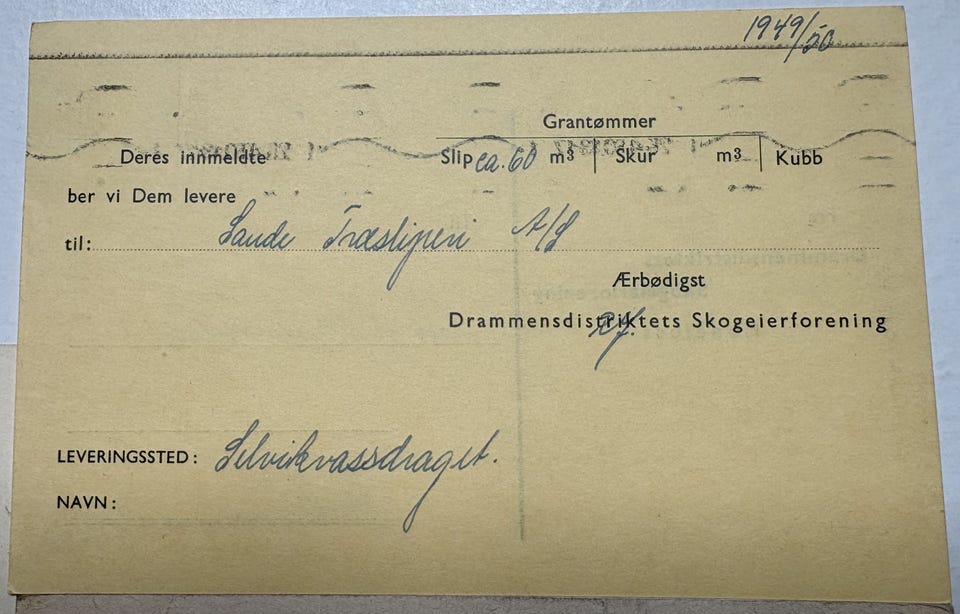 1949/50
Grantømmer
Deres innmeldte Slip ca. 60 m3 Skur m3 Kubb
ber vi Dem levere
til: Sande Træsliperi A/S
Ærbødigst
Drammensdistriktets Skogeierforening
LEVERINGSSTED: Selvikvassdraget.
NAVN: